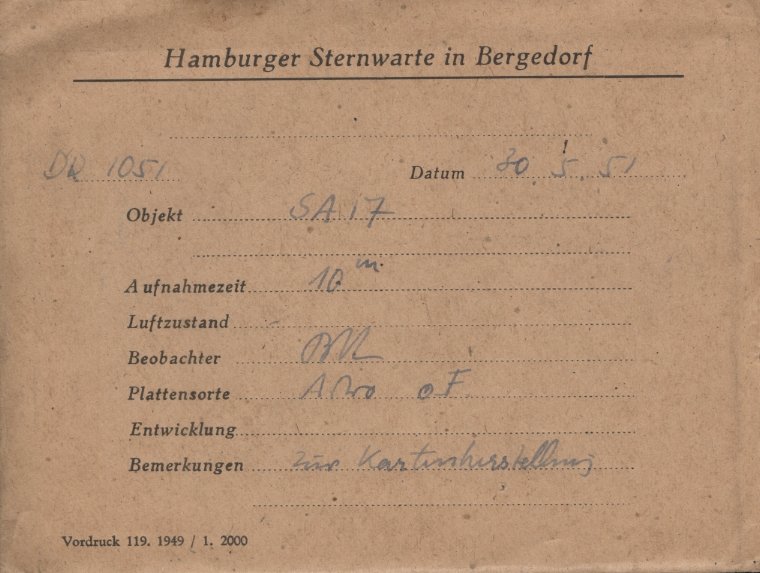 Hamburger Sternwarte in Bergedorf
1051 Datum 30. 5. 51
Objekt SA 17
Aufnahmezeit 10 m
Luftzustand
Beobachter
Plattensorte Astro oF.
Entwicklung
Bemerkungen zur Kartenherstellung
Vordruck 119. 1949 / 1. 2000